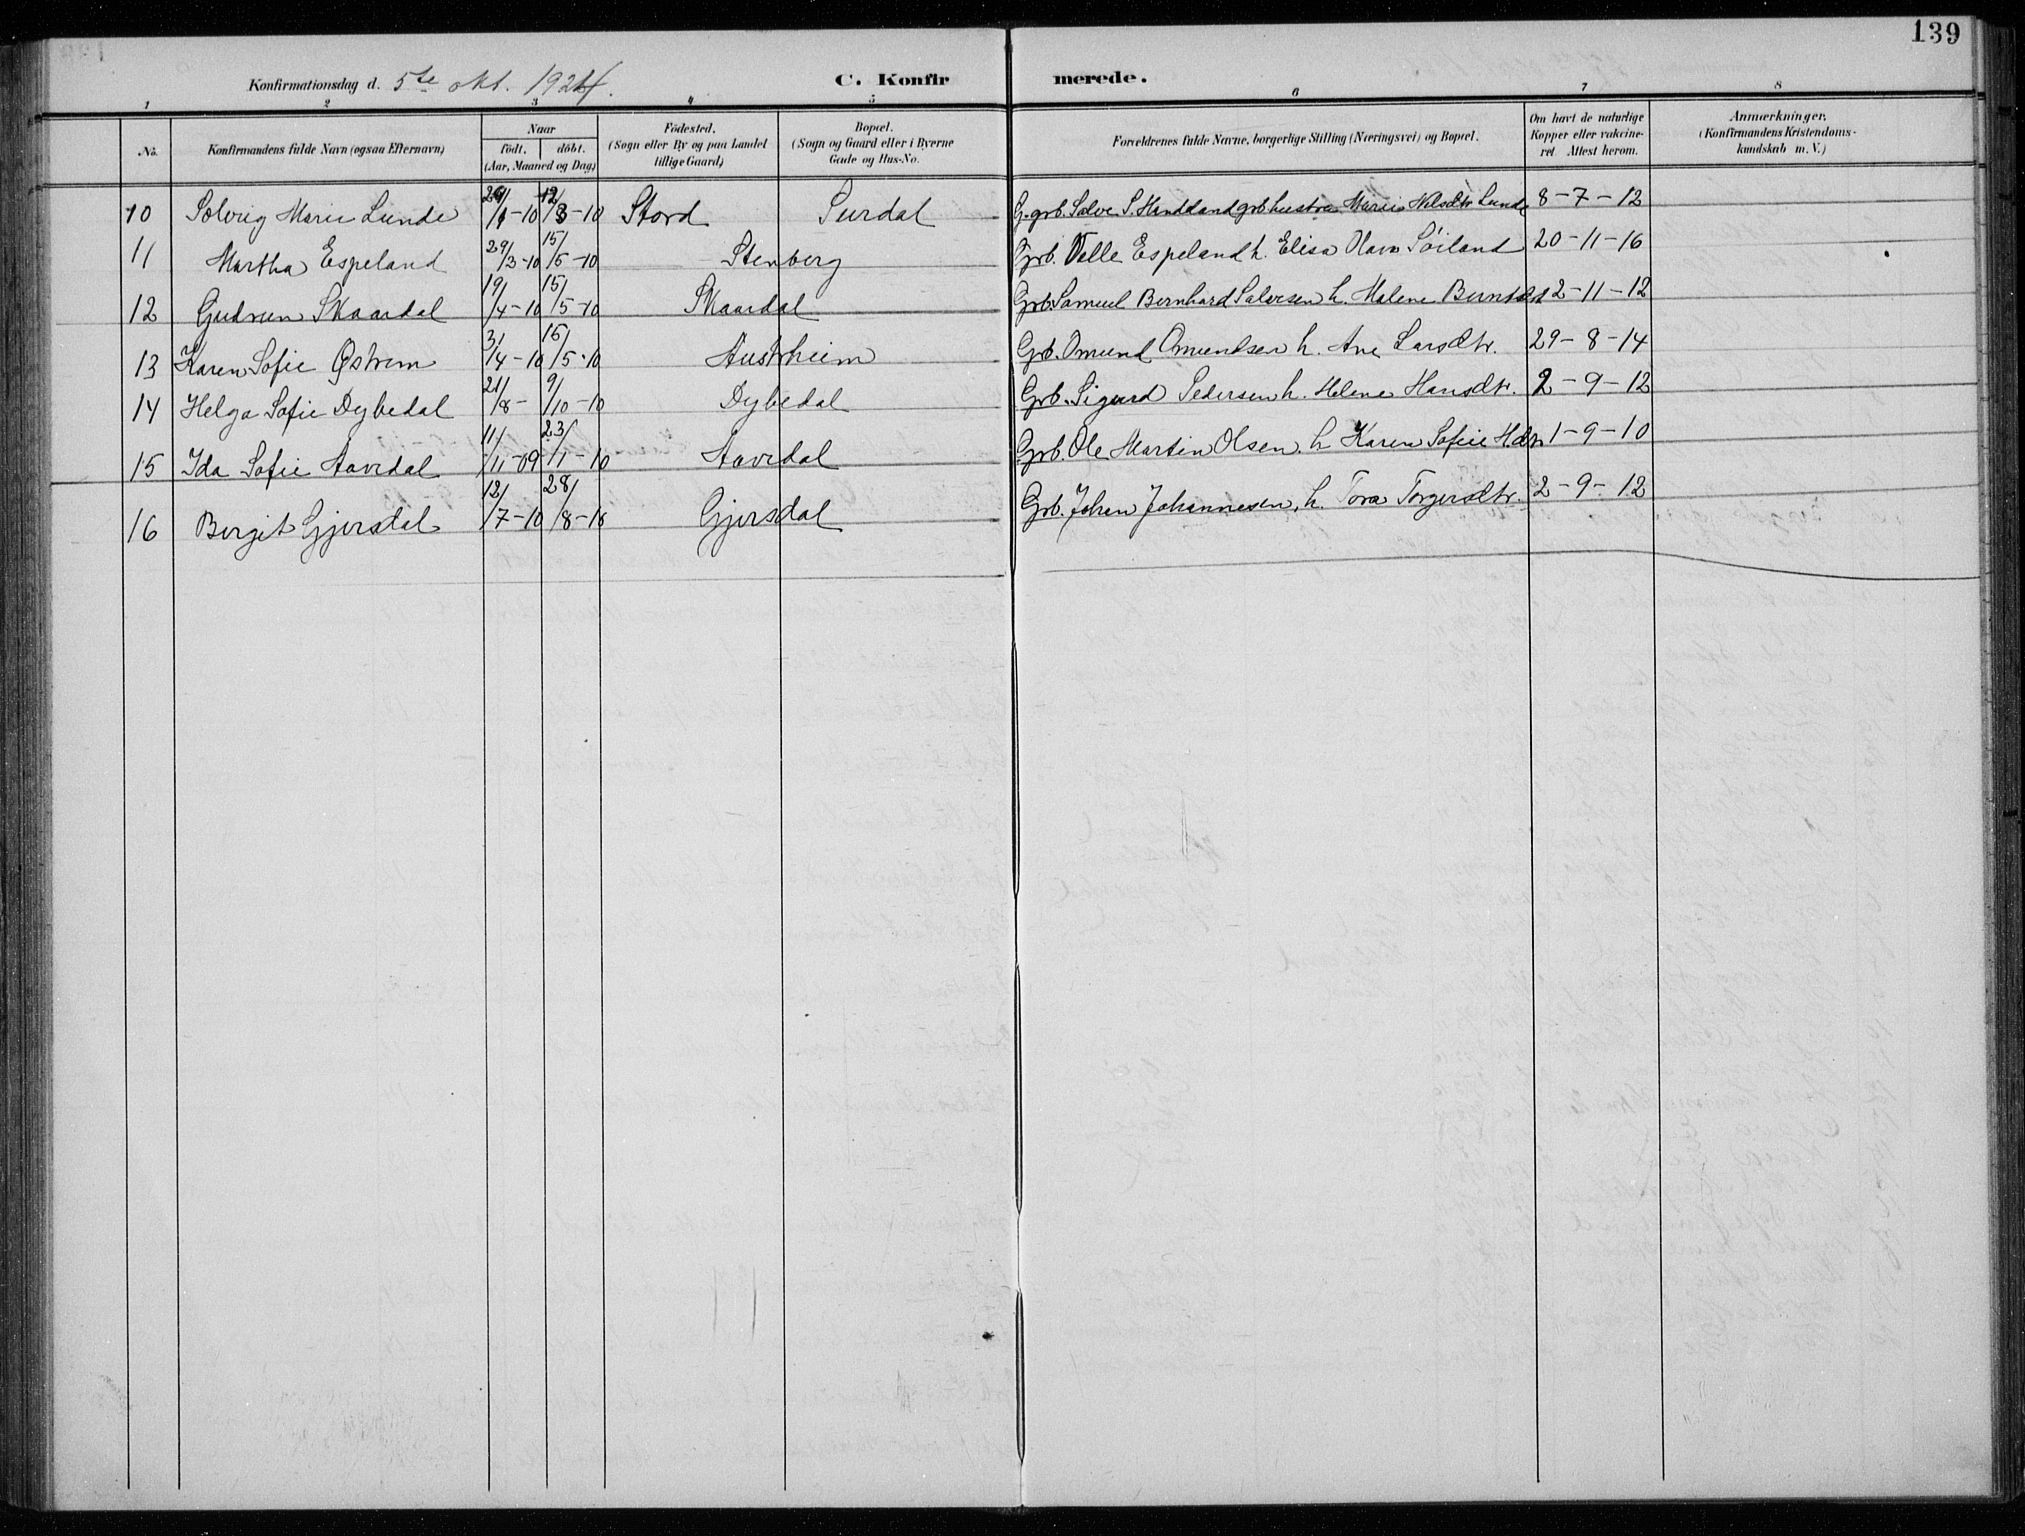 139
Konfirmationsdag d. 5te okt. 1924. C. Konfir merede.
1 2 3 4 5 6 7 8
No. Konfirmandens fulde Navn (ogsaa Efternavn) Naar født. døbt. (Aar, Maaned og Dag) Fødested. (Sogn eller By og paa Landet tillige Gaard) Bopæl. (Sogn og Gaard eller i Byerne Gade og Hus-No. Forældrenes fulde Navne, borgerlige Stilling (Næringsvei) og Bopæl. Om havt de naturlige Kopper eller vakcineret Attest herom. Anmærkninger. (Konfirmandens Kristendomskundskab m. V.)
10 Solveig Marie Lunde /1-10 12/3-10 Stord Surdal G. grb. Salve S. grb hustru Marie Nilsdtr Lunde 8-7-12
11 Martha Espeland 29/3-10 15/5-10 Stenberg Grb. Velle Espeland h. Elisa Olava Søiland 20-11-16
12 Gudrun Skaardal 19/4-10 15/5-10 Skaardal Grb. Samuel Bernhard Salvesen h. Malene 2-11-12
13 Karen Sofie Østrem 3/4-10 15/5-10 Austrheim Grb. Omund Omundsen h. Ane Larsdtr. 29-8-14
14 Helga Sofie Dybedal 21/8- 9/10-10 Dybedal Grb. Sigurd Pedersen h. Helene Hansdtr. 2-9-12
15 Ida Sofie Aavedal 11/11-09 23/1-10 Aavedal Grb. Ole Martin Olsen, h Karen Sofie Hdtr 1-9-10
16 Bergit Gjersdal 12/7-10 28/8-10 Gjersdal Grb. Johan Johannesen, h. Tora Torgersdtr. 2-9-12